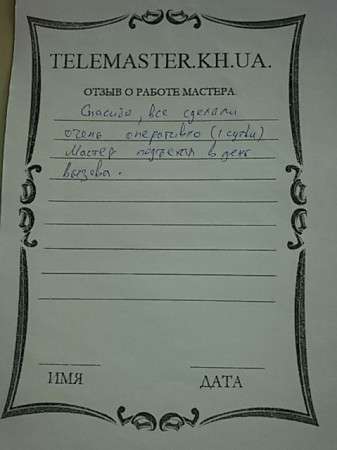 TELEMASTER.KH.UA.
ОТЗЫВ О РАБОТЕ МАСТЕРА
Спасибо, все сделали
очень оперативно (1 сутки)
Мастер подъехал в день
вызова.
ИМЯ
ДАТА